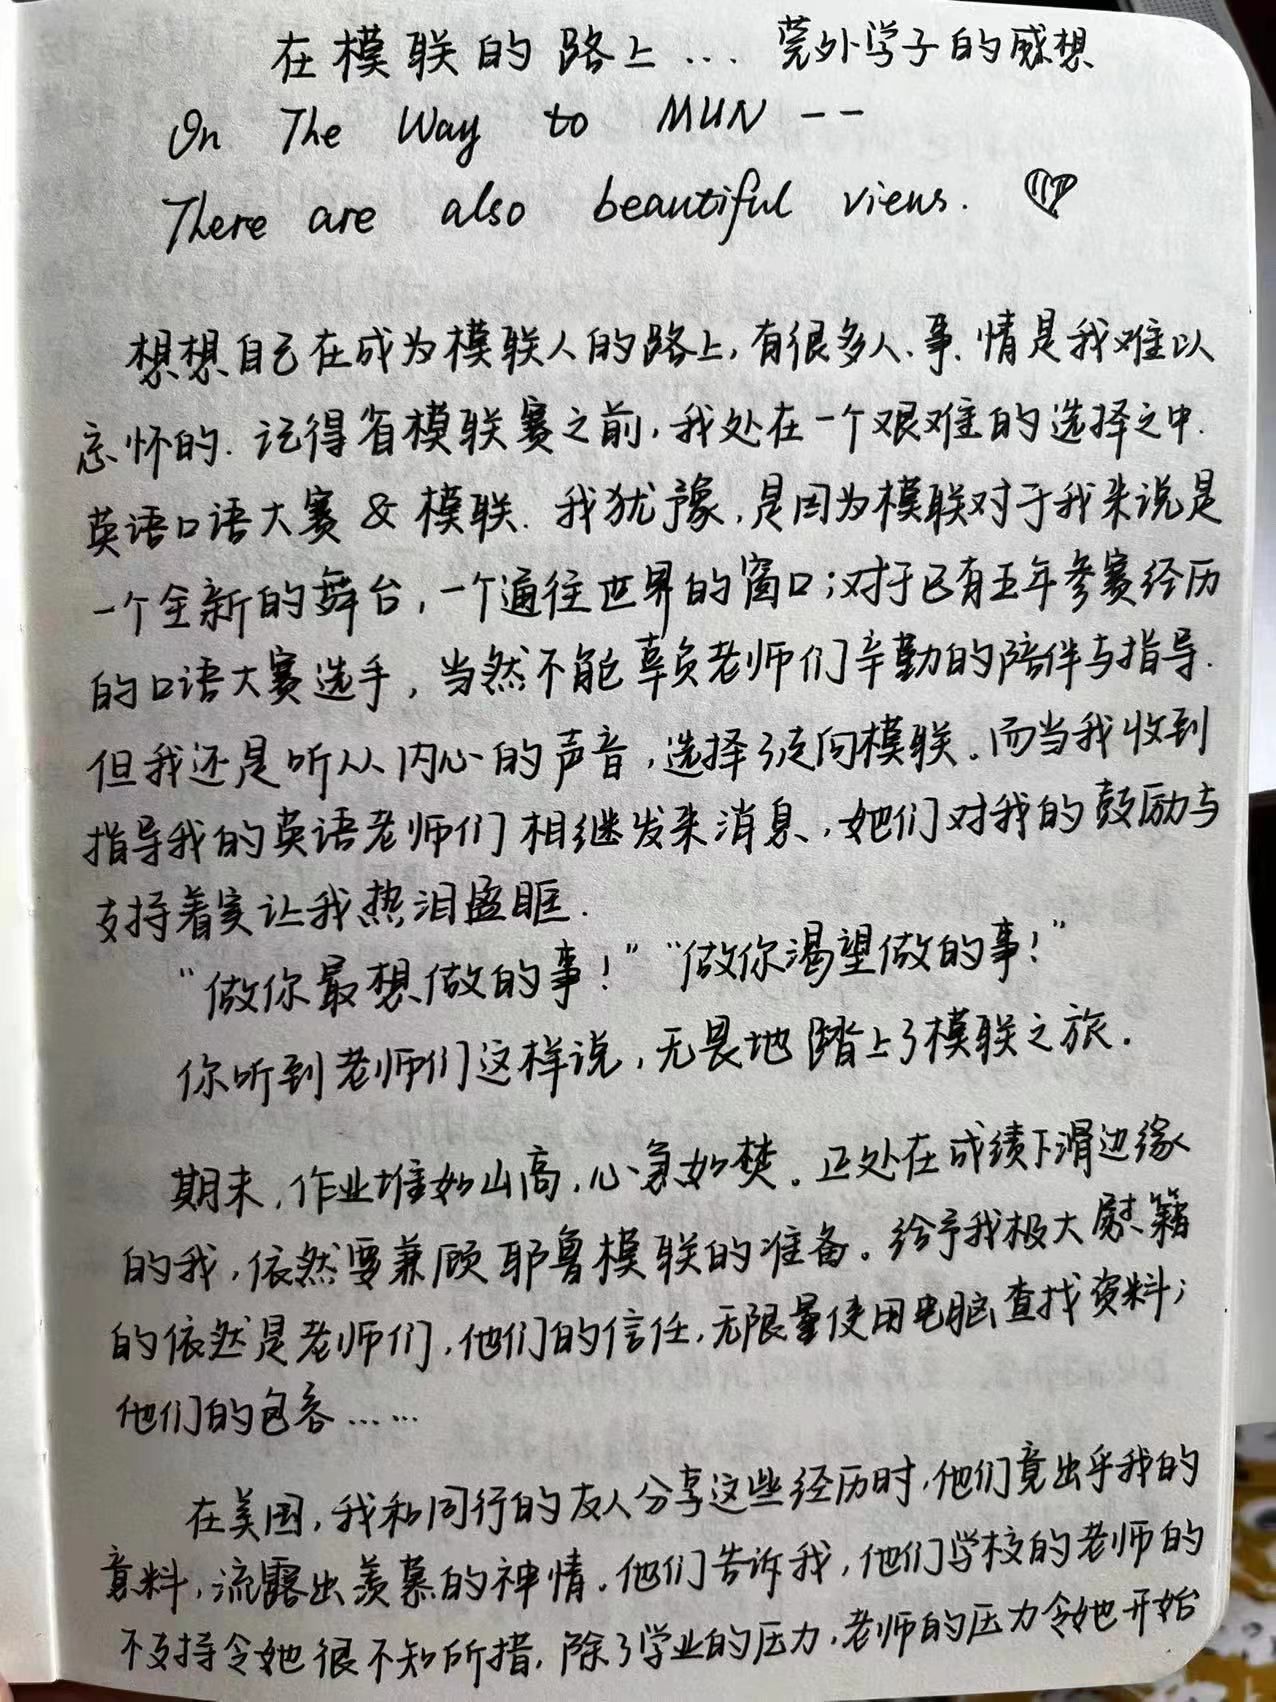 在模联的路上... 莞外学子的感想
On The Way to MUN --
There are also beautiful views.
想想自己在成为模联人的路上,有很多人、事、情是我难以
忘怀的. 记得省模联赛之前,我处在一个艰难的选择之中.
英语口语大赛 & 模联. 我犹豫,是因为模联对于我来说是
一个全新的舞台,一个通往世界的窗口;对于已有五年参赛经历
的口语大赛选手,当然不能辜负老师们辛勤的陪伴与指导.
但我还是听从内心的声音,选择了走向模联。而当我收到
指导我的英语老师们相继发来消息,她们对我的鼓励与
支持着实让我热泪盈眶.
“做你最想做的事!” “做你渴望做的事!”
你听到老师们这样说,无畏地踏上了模联之旅.
期末,作业堆如山高,心急如焚。正处在成绩下滑边缘
的我,依然要兼顾耶鲁模联的准备。给予我极大慰籍
的依然是老师们,他们的信任,无限量使用电脑查找资料;
他们的包容……
在美国,我和同行的友人分享这些经历时,他们竟出乎我的
意料,流露出羡慕的神情.他们告诉我,他们学校的老师的
不支持令她很不知所措,除了学业的压力,老师的压力令她开始